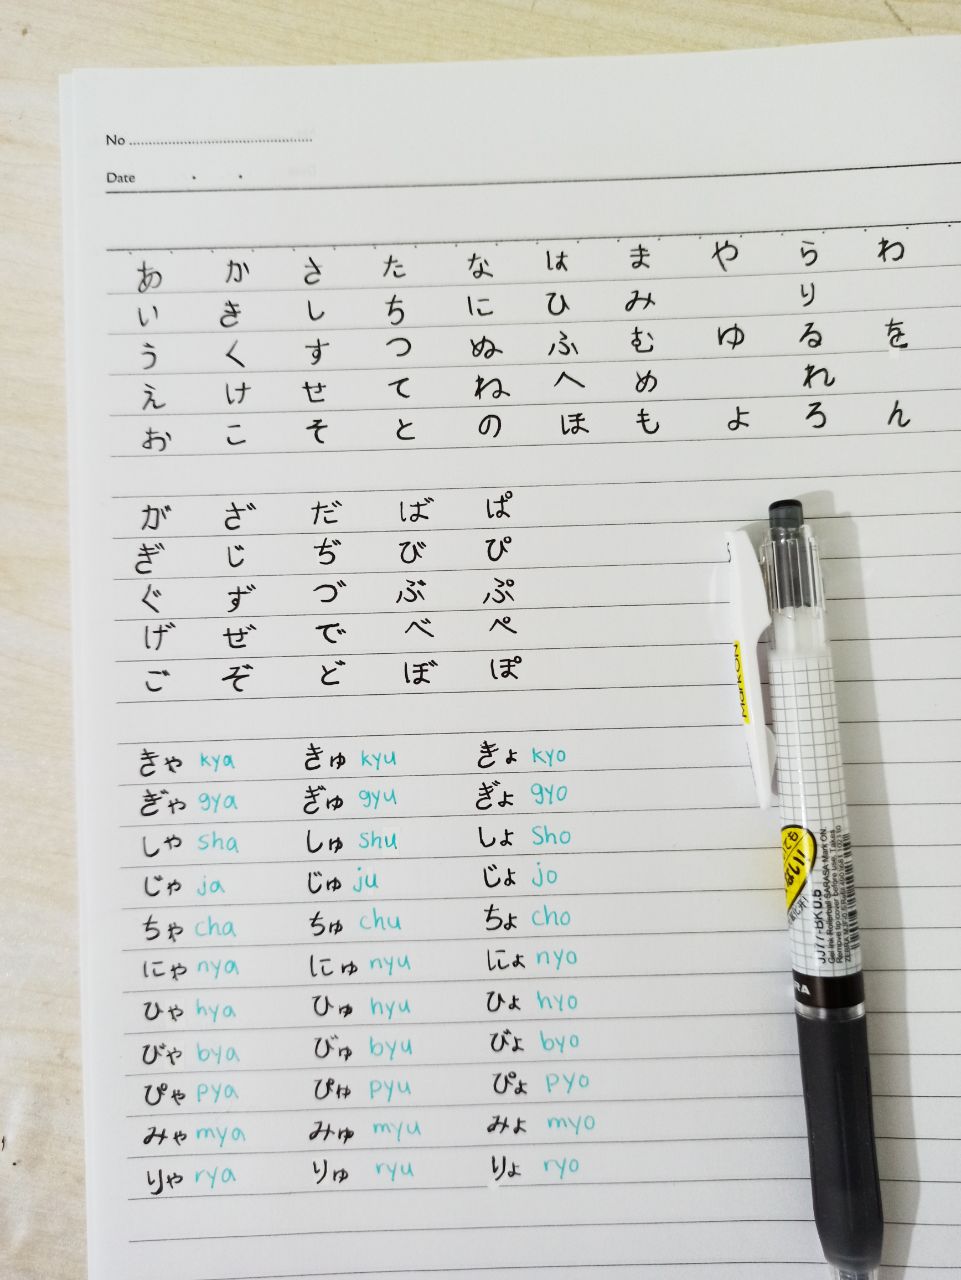 No
Date
あ か さ た な は ま や ら わ
い き し ち に ひ み り
う く す つ ぬ ふ む ゆ る を
え け せ て ね へ め れ
お こ そ と の ほ も よ ろ ん
が ざ だ ば ぱ
ぎ じ ぢ び ぴ
ぐ ず づ ぶ ぷ
げ ぜ で べ ぺ
ご ぞ ど ぼ ぽ
きゃ kya きゅ kyu きょ kyo
ぎゃ gya ぎゅ gyu ぎょ gyo
しゃ sha しゅ shu しょ Sho
じゃ ja じゅ ju じょ jo
ちゃ cha ちゅ chu ちょ cho
にゃ nya にゅ nyu にょ nyo
ひゃ hya ひゅ hyu ひょ hyo
びゃ bya びゅ byu びょ byo
ぴゃ pya ぴゅ pyu ぴょ pyo
みゃ mya みゅ myu みょ myo
りゃ rya りゅ ryu りょ ryo
Mark ON
JJ77-BK 0.5
Gel Ink Rollerball SARASA Mark ON
Remove tip cover before use.